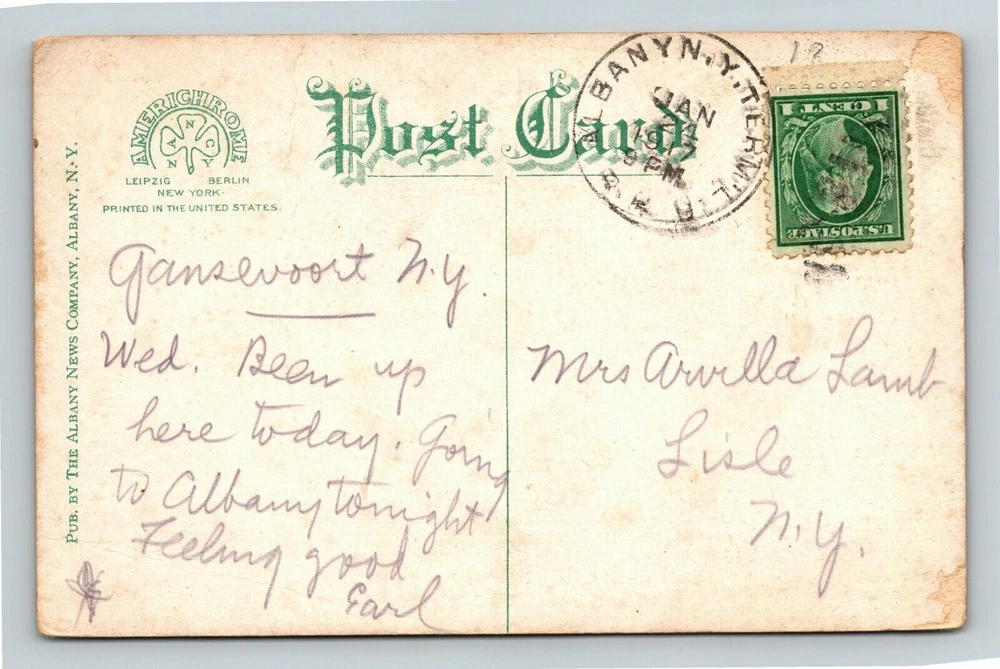 AMERICHROME
NANCY
LEIPZIG BERLIN
NEW YORK.
PRINTED IN THE UNITED STATES.
Post Card
ALBANY N.Y. TERM'L
JAN
9 PM
R.P.O.
1 CENT 1
U.S. POSTAGE
PUB. BY THE ALBANY NEWS COMPANY, ALBANY, N. Y.
Gansevoort N.Y
Wed. Been up
here today. Going
to Albany tonight
Feeling good
Earl
Mrs Arvilla Lamb
Lisle
N.Y.